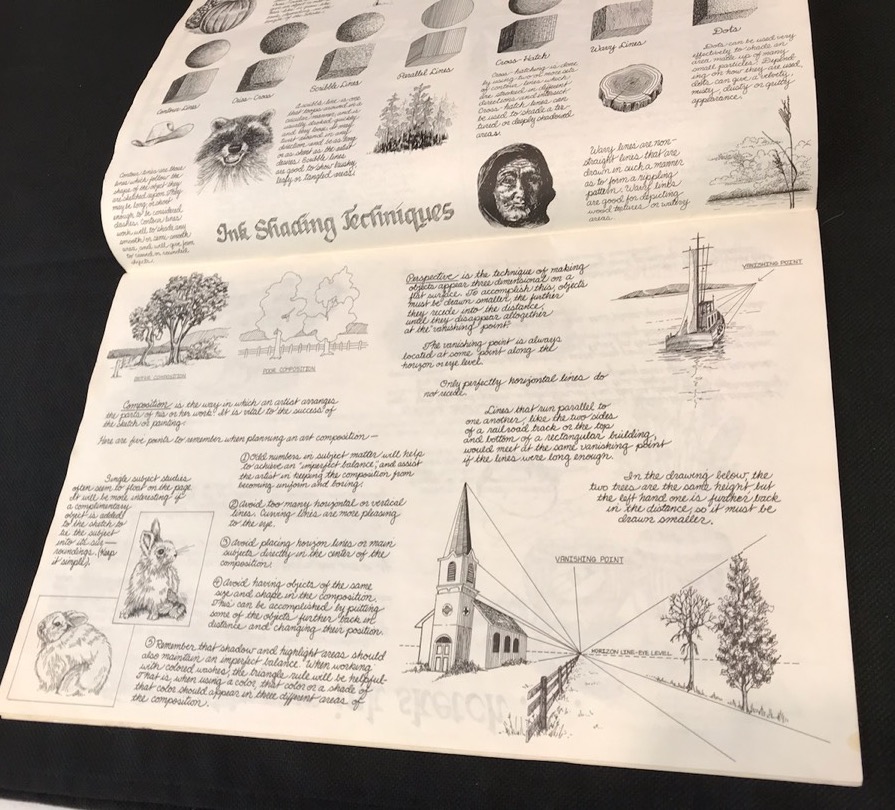 Contour Lines
Criss-Cross
Scribble Lines
Parallel Lines
Cross-Hatch
Wavy Lines
Dots
Contour lines are those
lines which follow the
shape of the object they
are sketched upon. They
may be long or short
enough to be considered
dashes. Contour lines
work well to shade any
smooth or semi-smooth
area and will give form
to curved or rounded
objects.
A scribble line is one
that loops around in a
circular manner, and is
usually sketched quickly
and very loose. It may
twist around in any
direction and be as long
or as short as the artist
desires. Scribble lines
are good to show bushy,
leafy or tangled areas.
Cross-hatching is done
by using two or more sets
of contour lines which
are stroked in different
directions and intersect.
Cross-hatch lines can
be used to shade a tex-
tured or deeply shadowed
areas.
Wavy lines are non-
straight lines that are
drawn in such a manner
as to form a rippling
pattern. Wavy lines
are good for depicting
wood textures or watery
areas.
Dots can be used very
effectively to shade an
area made up of many
small particles. Depend-
ing on how they are used,
dots can give a velvety,
misty, dusty or gritty
appearance.
Ink Shading Techniques
BETTER COMPOSITION
POOR COMPOSITION
Composition is the way in which an artist arranges
the parts of his or her work. It is vital to the success of
the sketch or painting.
Here are five points to remember when planning an art composition—
① Odd numbers in subject matter will help
to achieve an "imperfect balance", and assist
the artist in keeping the composition from
becoming uniform and boring.
② Avoid too many horizontal or vertical
lines. Curving lines are more pleasing
to the eye.
③ Avoid placing horizon lines or main
subjects directly in the center of the
composition.
④ Avoid having objects of the same
size and shape in the composition.
This can be accomplished by putting
some of the objects further back in
distance and changing their position.
⑤ Remember that shadow and highlight areas should
also maintain an imperfect balance. When working
with colored washes, the triangle rule will be helpful.
That is, when using a color, that color or a shade of
that color should appear in three different areas of
the composition.
Single subject studies
often seem to float on the page.
It will be more interesting if
a complimentary
object is added
to the sketch to
tie the subject
into its sur—
roundings. (Keep
it simple).
Perspective is the technique of making
objects appear three dimensional on a
flat surface. To accomplish this, objects
must be drawn smaller the further
they recede into the distance,
until they disappear altogether
at the "vanishing point".
The vanishing point is always
located at some point along the
horizon or eye level.
Only perfectly horizontal lines do
not recede.
Lines that run parallel to
one another, like the two sides
of a railroad track or the top
and bottom of a rectangular building,
would meet at the same vanishing point
if the lines were long enough.
In the drawing below, the
two trees are the same height but
the left hand one is further back
in the distance, so it must be
drawn smaller.
VANISHING POINT
VANISHING POINT
HORIZON LINE-EYE LEVEL